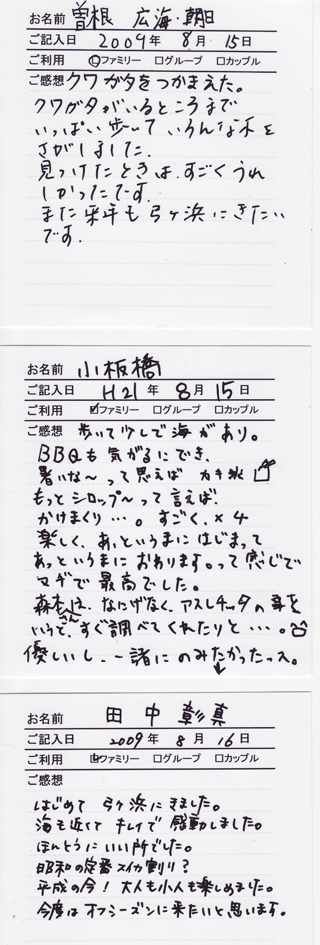 お名前 曽根 広海・朝日
ご記入日 2009年 8月 15日
ご利用 ☑ファミリー □グループ □カップル
ご感想 クワガタをつかまえた。
クワガタがいるところまで
いっぱい歩いていろんな木を
さがしました。
見つけたときは、すごくうれ
しかったです。
また来年も弓ヶ浜にきたい
です。
お名前 小板橋
ご記入日 H21年 8月 15日
ご利用 ☑ファミリー □グループ □カップル
ご感想 歩いて少しで海があり。
BBQも気がるにでき、
暑いな〜って思えば カキ氷
もっとシロップ〜って言えば、
かけまくり…。すごく、×4
楽しく、あっというまにはじまって
あっというまにおわります。って感じで
マヂで最高でした。
森さんは、なにげなく、アスレチックの事を
いうと、すぐ調べてくれたりと…。
優しいし、一諸にのみたかったっス。
お名前 田中 彰真
ご記入日 2009年 8月 16日
ご利用 ☑ファミリー □グループ □カップル
ご感想
はじめて 弓ヶ浜にきました。
海も近くて キレイで 感動しました。
ほんとうにいい所でした。
昭和の定番スイカ割り?
平成の今! 大人も小人も楽しめました。
今度はオフシーズンに来たいと思います。